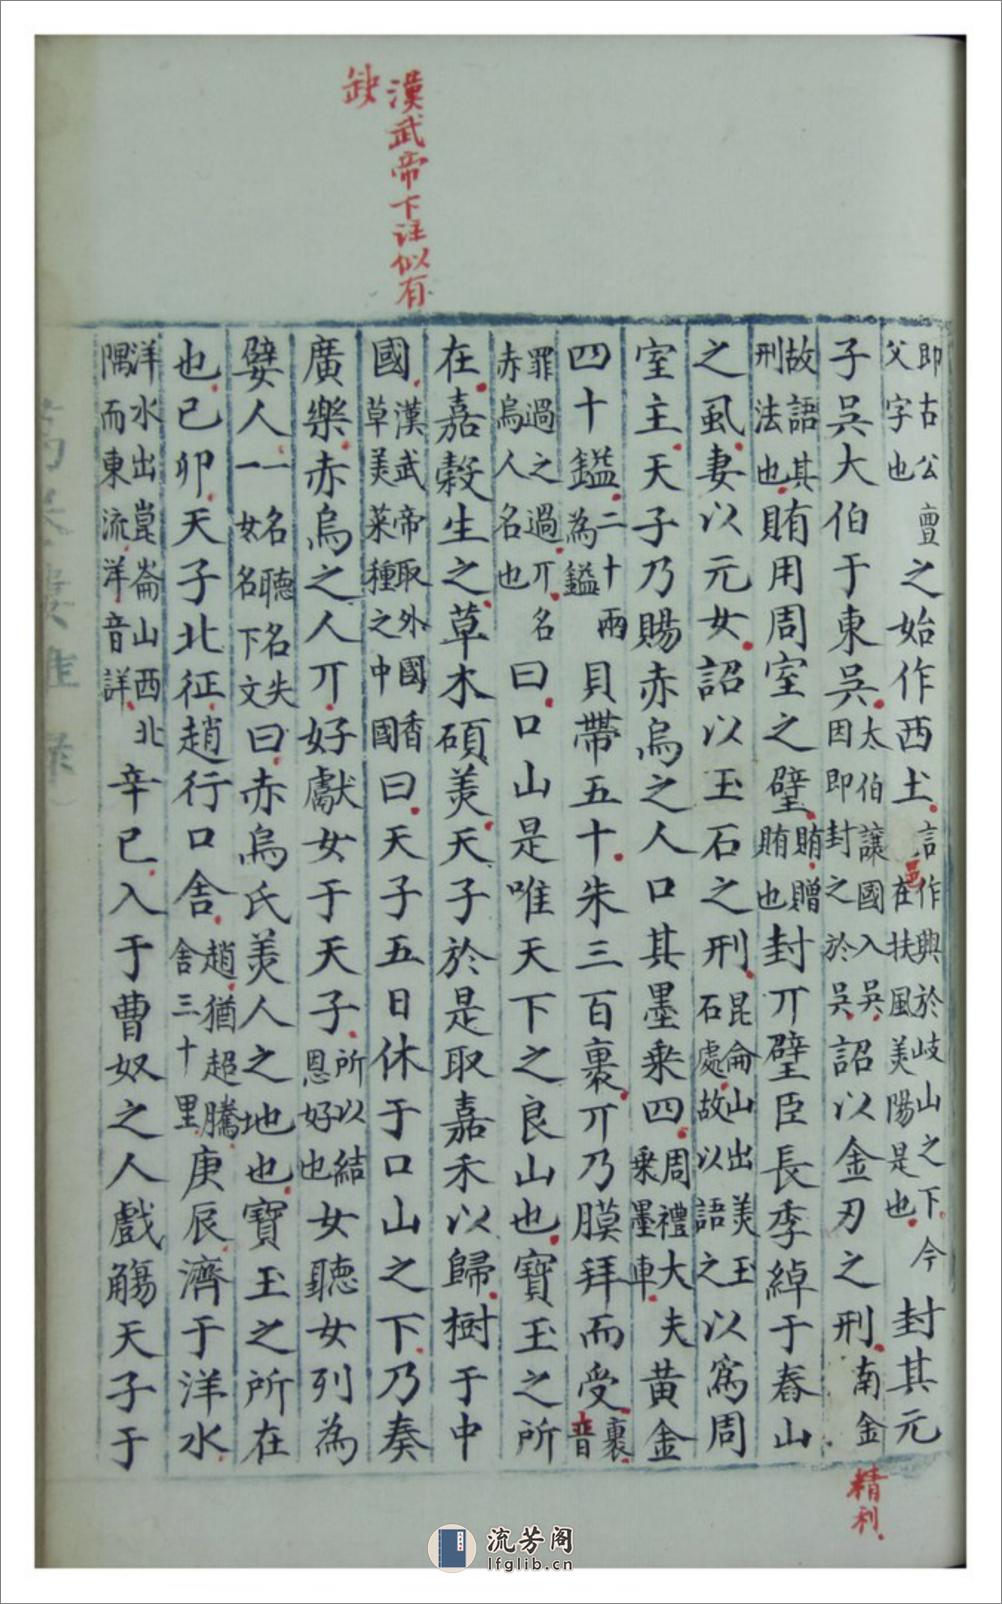 漢武帝下注似有
缺
即古公
父字也
亶之始作西土言作興於岐山之下今
邑在扶風美陽是也
封其元
子吳大伯于東吳太伯讓國入吳
因即封之於吳詔以金刃之刑南金
精利
故語其
刑法也賄用周室之璧賄贈
賄也封丌璧臣長季綽于舂山
之虱妻以元女詔以玉石之刑昆侖山出美玉
石處故以語之以爲周
室主天子乃賜赤烏之人口其墨乘四周禮大夫
乘墨車黃金
四十鎰二十兩
為鎰貝帶五十朱三百裹丌乃膜拜而受裹
音
罪過之過丌名
赤烏人名也曰口山是唯天下之良山也寶玉之所
在嘉穀生之草木碩美天子於是取嘉禾以歸樹于中
國漢武帝取外國香
草美菜種之中國曰天子五日休于口山之下乃奏
廣樂赤烏之人丌好獻女于天子所以結
恩好也女聽女列為
嬖人一名聽名失
一女名下文曰赤烏氏美人之地也寶玉之所在
也己卯天子北征趙行口舍趙猶超騰
舍三十里庚辰濟于洋水
洋水出崑崙山西北
隅而東流洋音詳辛巳入于曹奴之人戲觴天子于
流芳阁
lfglib.cn